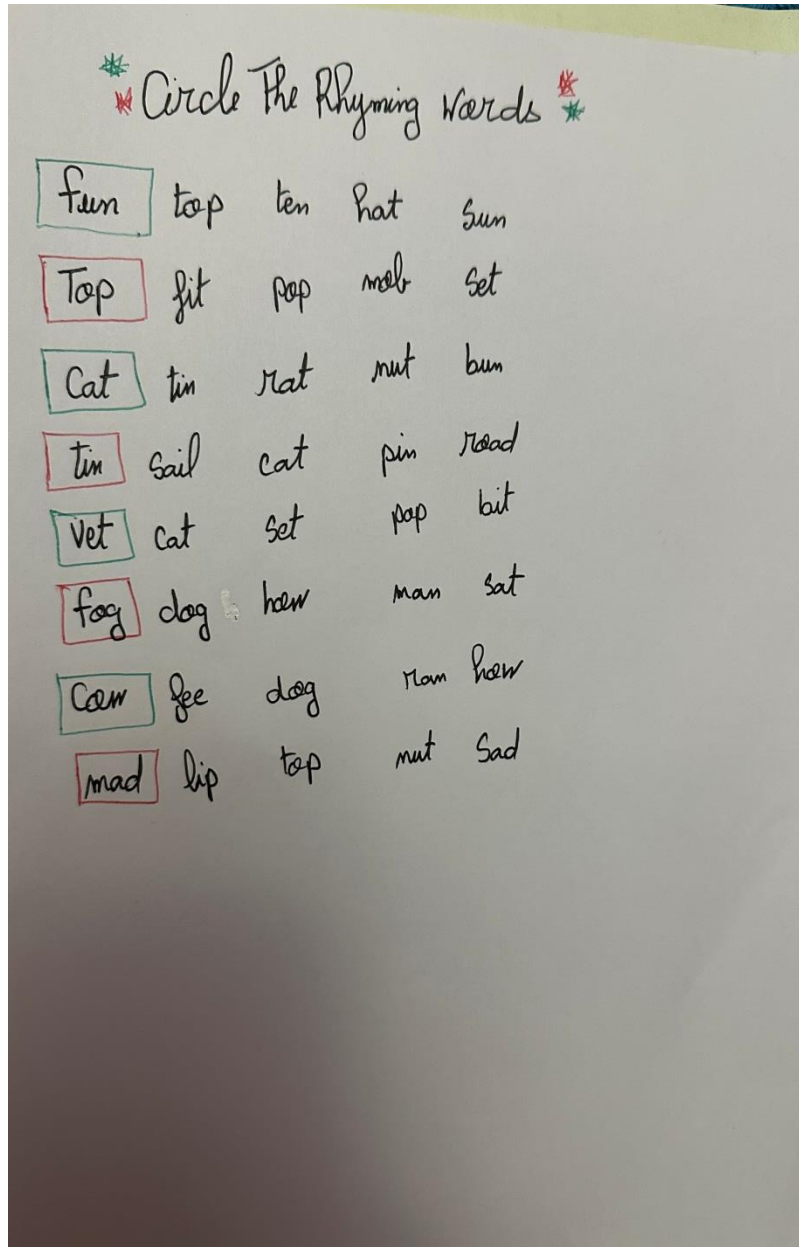 Circle The Rhyming Words
fun top ten hat Sun
Top fit pop mob set
Cat tin rat nut bun
tin sail cat pin road
Vet cat set pop bit
fog dog how man sat
Cow fee dog how
mad lip top nut Sad